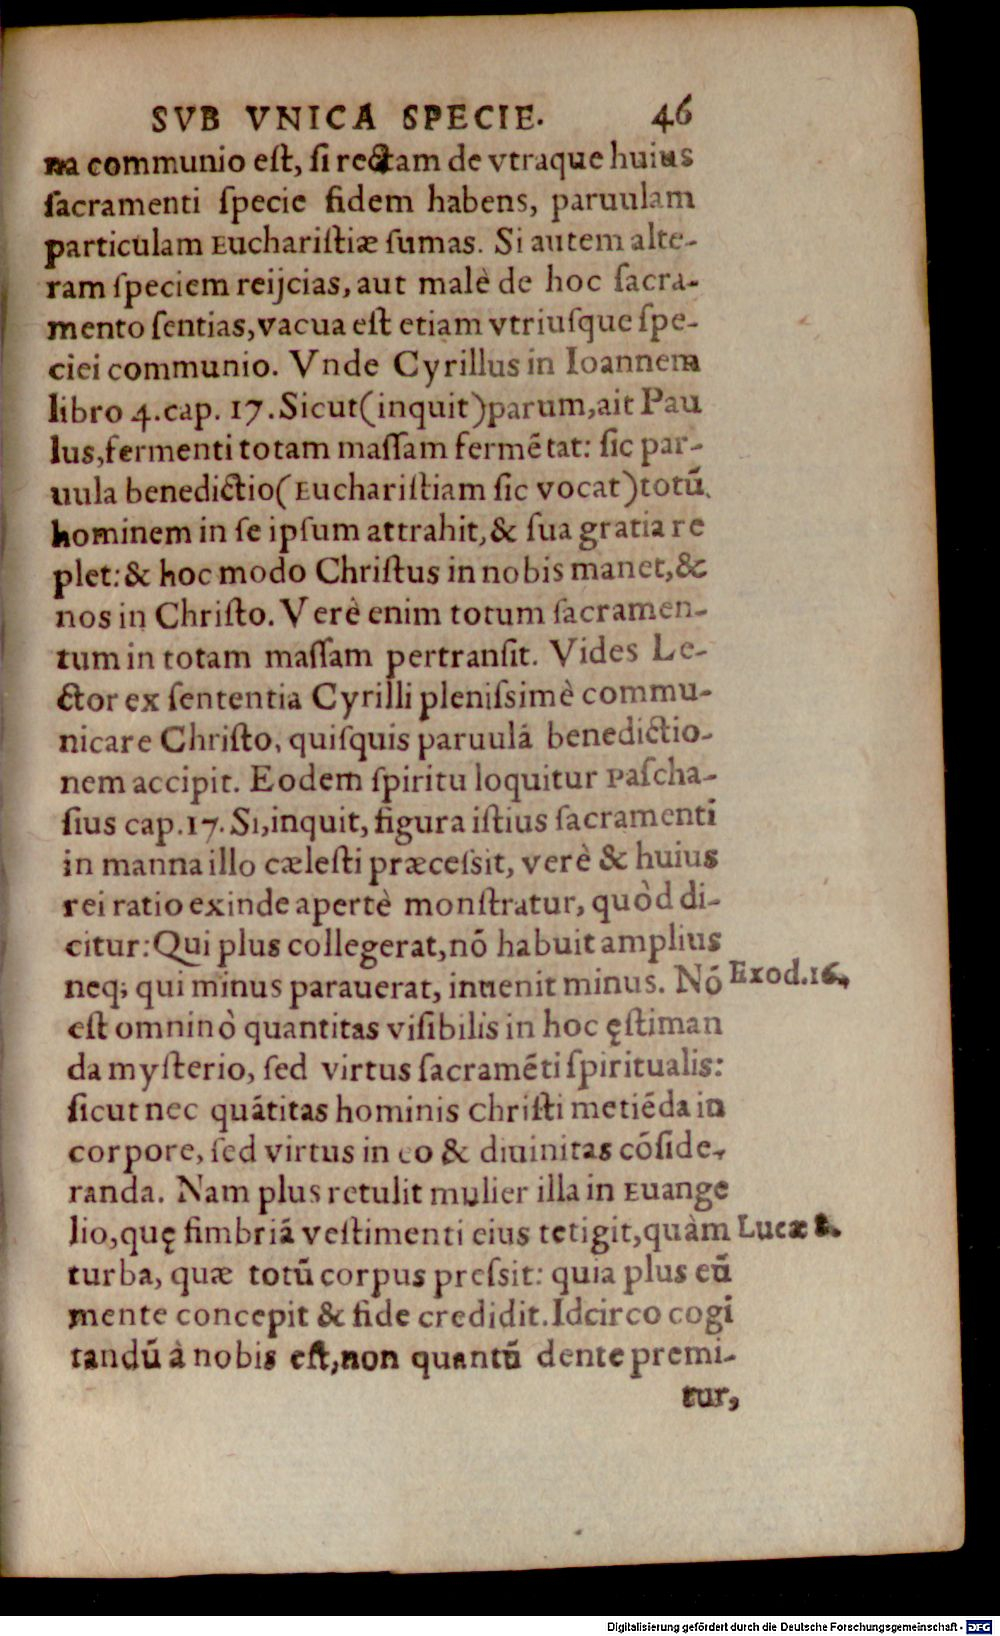 SVB VNICA SPECIE. 46
na communio est, si rectam de vtraque huius
sacramenti specie fidem habens, paruulam
particulam Eucharistiæ sumas. Si autem alte-
ram speciem reijcias, aut malè de hoc sacra-
mento sentias, vacua est etiam vtriusque spe-
ciei communio. Vnde Cyrillus in Ioannem
libro 4. cap. 17. Sicut (inquit) parum, ait Pau
lus, fermenti totam massam fermẽtat: sic par-
uula benedictio (Eucharistiam sic vocat) totũ
hominem in se ipsum attrahit, & sua gratia re
plet: & hoc modo Christus in nobis manet, &
nos in Christo. Verè enim totum sacramen-
tum in totam massam pertransit. Vides Le-
ctor ex sententia Cyrilli plenissimè commu-
nicare Christo, quisquis paruulã benedictio-
nem accipit. Eodem spiritu loquitur Pascha-
sius cap. 17. Si, inquit, figura istius sacramenti
in manna illo cælesti præcessit, verè & huius
rei ratio exinde apertè monstratur, quòd di-
citur: Qui plus collegerat, nõ habuit amplius
neq; qui minus parauerat, inuenit minus. Nõ
Exod. 16.
est omninò quantitas visibilis in hoc ęstiman
da mysterio, sed virtus sacramẽti spiritualis:
sicut nec quãtitas hominis Christi metiẽda in
corpore, sed virtus in eo & diuinitas cõside-
randa. Nam plus retulit mulier illa in Euange
lio, quę fimbriã vestimenti eius tetigit, quàm
Lucæ 8.
turba, quæ totũ corpus pressit: quia plus eũ
mente concepit & fide credidit. Idcirco cogi
tandũ à nobis est, non quantũ dente premi-
tur,
Digitalisierung gefördert durch die Deutsche Forschungsgemeinschaft - DFG